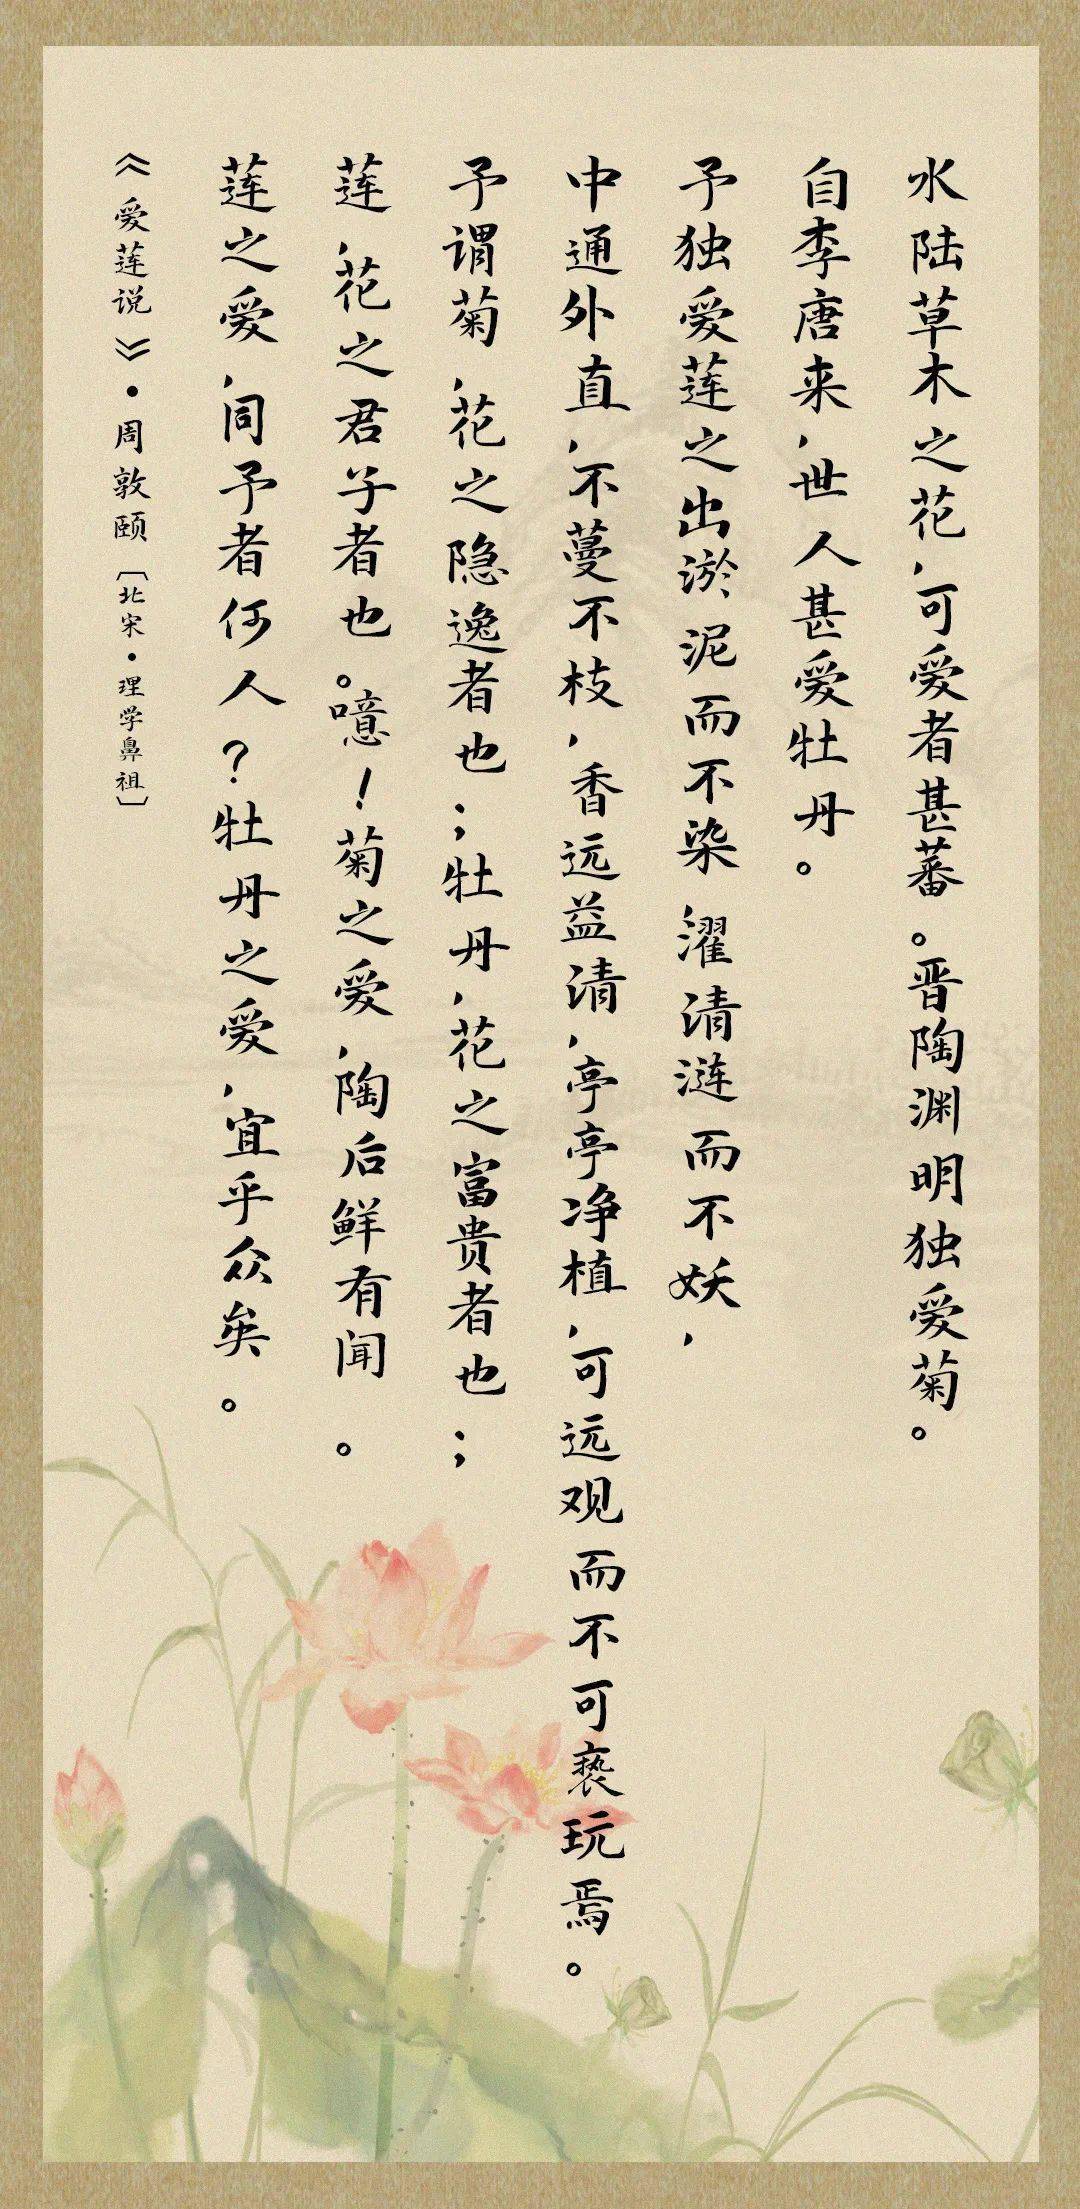 水陆草木之花，可爱者甚蕃。晋陶渊明独爱菊。
自李唐来，世人甚爱牡丹。
予独爱莲之出淤泥而不染，濯清涟而不妖，
中通外直，不蔓不枝，香远益清，亭亭净植，可远观而不可亵玩焉。
予谓菊，花之隐逸者也；牡丹，花之富贵者也；
莲，花之君子者也。噫！菊之爱，陶后鲜有闻。
莲之爱，同予者何人？牡丹之爱，宜乎众矣。
《爱莲说》·周敦颐［北宋·理学鼻祖］